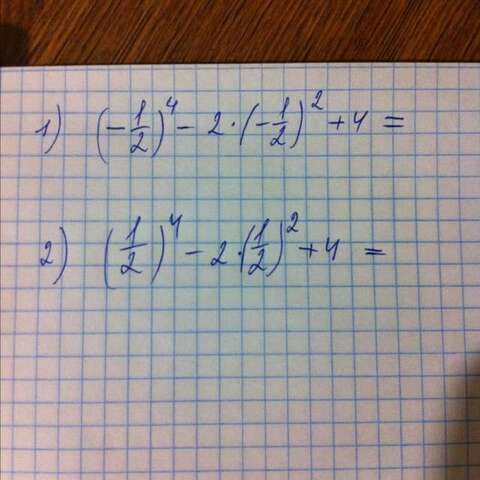 1) (-1/2)^4 - 2·(-1/2)^2 + 4 =
2) (1/2)^4 - 2·(1/2)^2 + 4 =